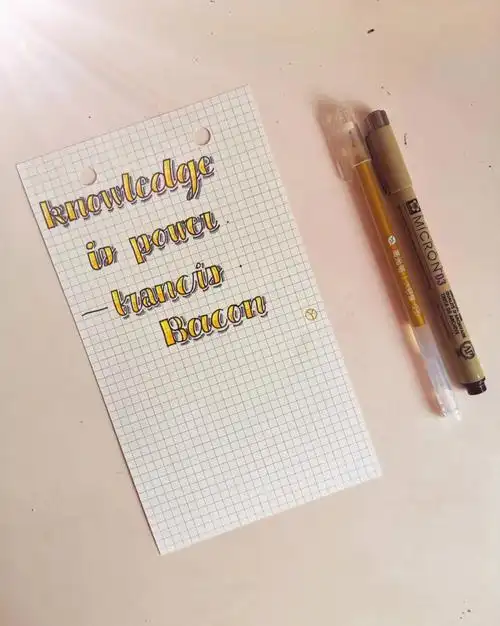 knowledge
is power
— francis
Bacon
MICRON 03